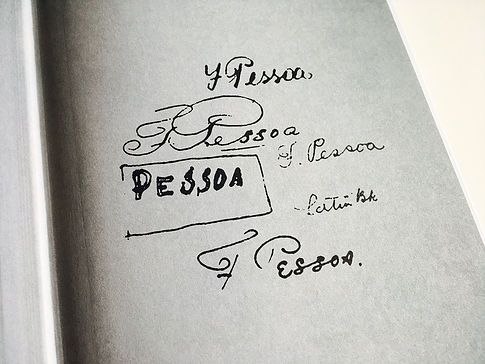 F Pessoa
F. Pessoa
F. Pessoa
PESSOA
Latin Bk
F PESSOA.